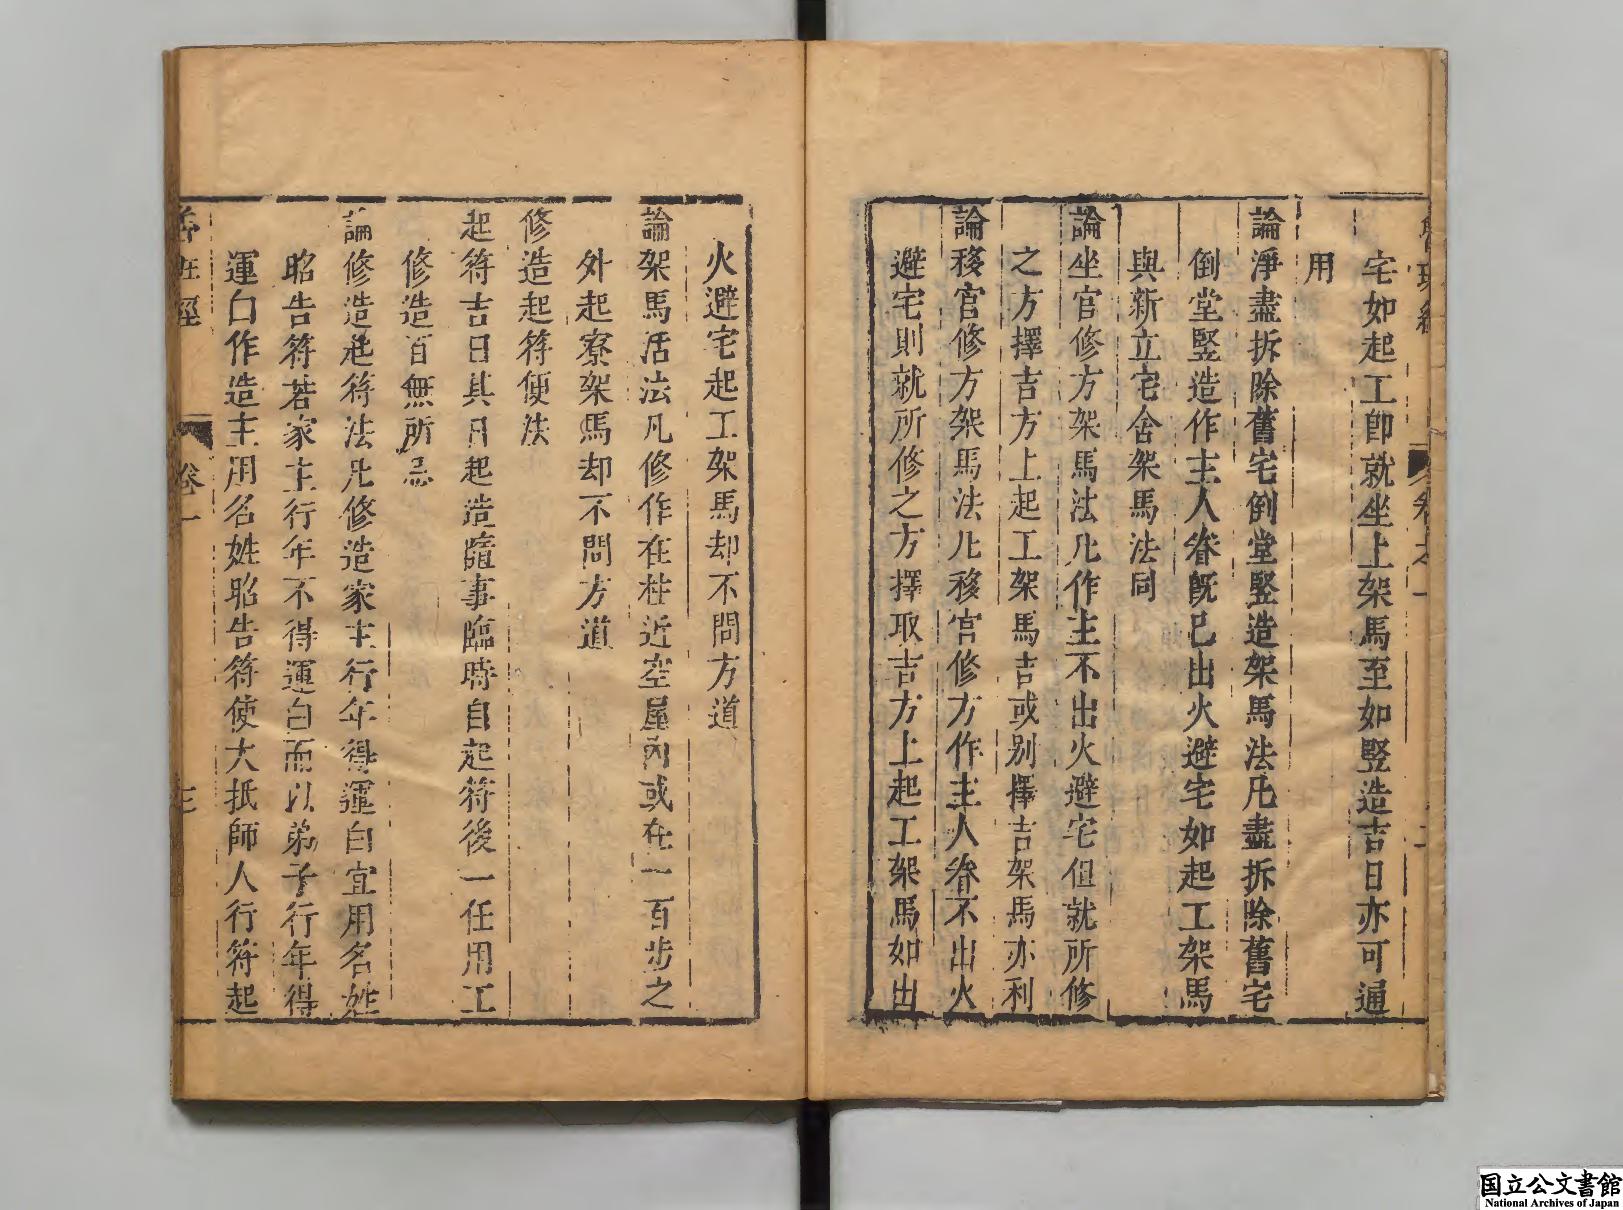 宅如起工即就坐上架馬至如竪造吉日亦可通
用
論淨盡拆除舊宅倒堂竪造架馬法凡盡拆除舊宅
倒堂竪造作主人眷既已出火避宅如起工架馬
與新立宅舍架馬法同
論坐宮修方架馬法凡作主不出火避宅但就所修
之方擇吉方上起工架馬吉或别擇吉架馬亦利
論移宮修方架馬法凡移宮修方作主人眷不出火
避宅則就所修之方擇取吉方上起工架馬如出
火避宅起工架馬却不問方道
論架馬活法凡修作在柱近空屋内或在一百步之
外起寮架馬却不問方道
修造起符便法
起符吉日其日起造隨事臨時自起符後一任用工
修造百無所忌
論修造起符法凡修造家主行年得運白宜用名姓
昭告符若家主行年不得運白而以弟子行年得
運白作造主用名姓昭告符使大抵師人行符起
魯班經 卷一
国立公文書館
National Archives of Japan